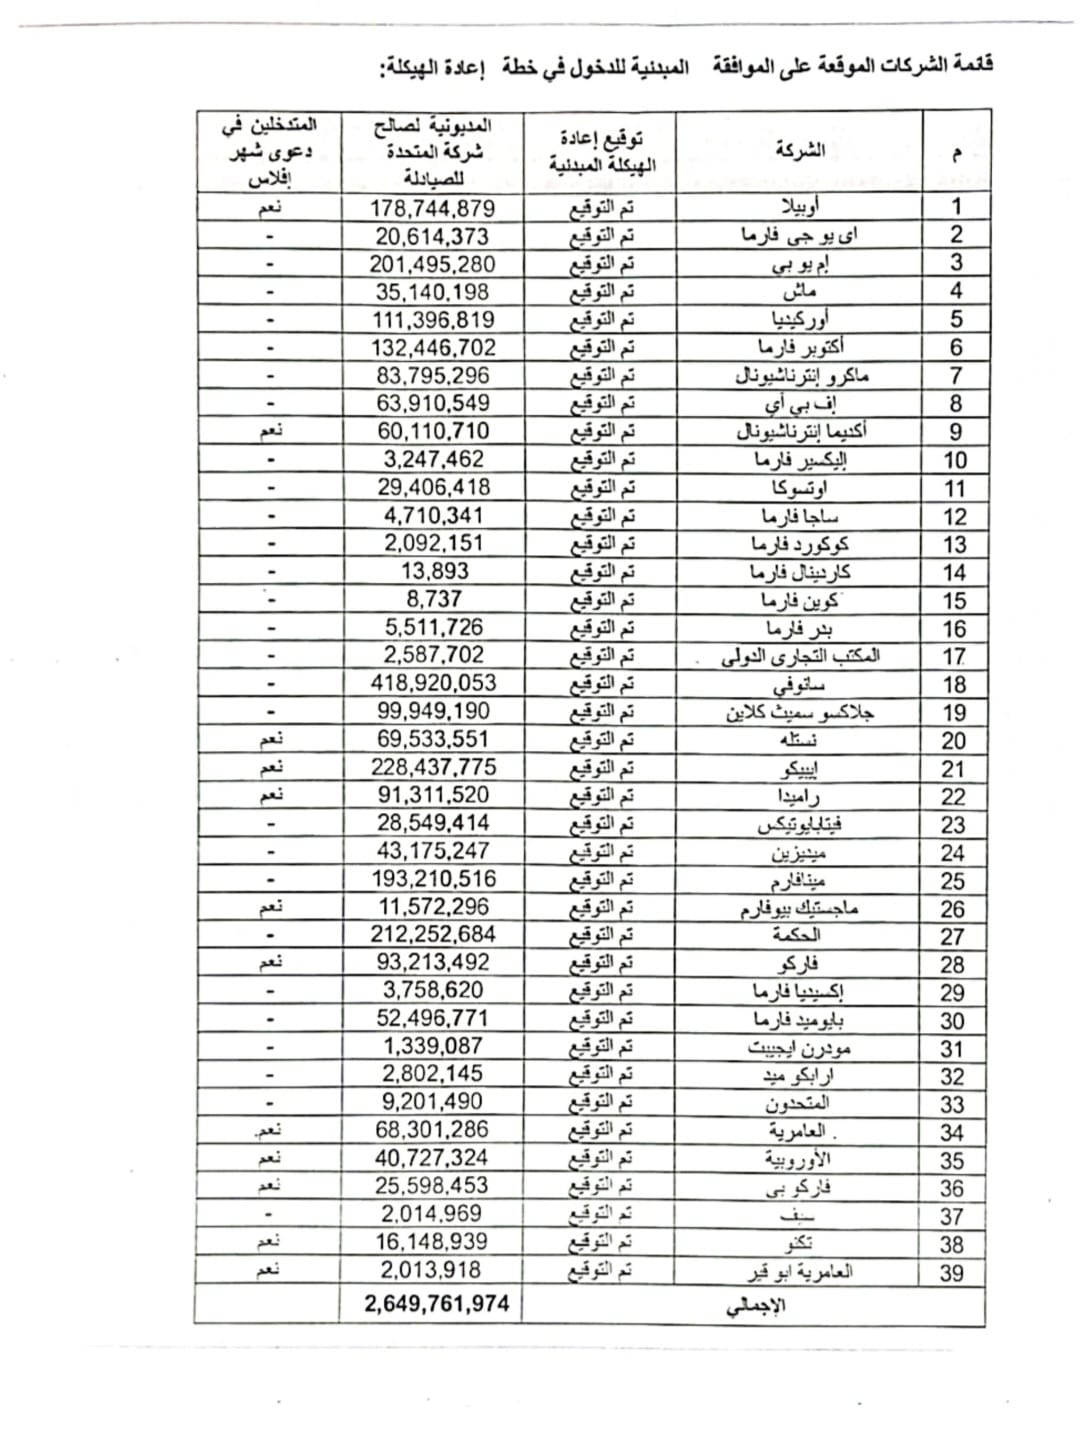 قائمة الشركات الموقعة على الموافقة المبدئية للدخول في خطة إعادة الهيكلة:
م الشركة توقيع إعادة الهيكلة المبدئية المديونية لصالح شركة المتحدة للصيادلة المتدخلين في دعوى شهر إفلاس
1 أوبيلا تم التوقيع 178,744,879 نعم
2 اى يو جى فارما تم التوقيع 20,614,373 -
3 إم يو بي تم التوقيع 201,495,280 -
4 ماش تم التوقيع 35,140,198 -
5 أوركيديا تم التوقيع 111,396,819 -
6 أكتوبر فارما تم التوقيع 132,446,702 -
7 ماكرو إنترناشيونال تم التوقيع 83,795,296 -
8 إف بي أي تم التوقيع 63,910,549 -
9 أكديما إنترناشيونال تم التوقيع 60,110,710 نعم
10 إليكسير فارما تم التوقيع 3,247,462 -
11 اوتسوكا تم التوقيع 29,406,418 -
12 ساجا فارما تم التوقيع 4,710,341 -
13 كوكورد فارما تم التوقيع 2,092,151 -
14 كاردينال فارما تم التوقيع 13,893 -
15 كوين فارما تم التوقيع 8,737 -
16 بدر فارما تم التوقيع 5,511,726 -
17 المكتب التجارى الدولى تم التوقيع 2,587,702 -
18 سانوفي تم التوقيع 418,920,053 -
19 جلاكسو سميث كلاين تم التوقيع 99,949,190 -
20 نستله تم التوقيع 69,533,551 نعم
21 إيبيكو تم التوقيع 228,437,775 نعم
22 راميدا تم التوقيع 91,311,520 نعم
23 فيتابايوتيكس تم التوقيع 28,549,414 -
24 ميديزين تم التوقيع 43,175,247 -
25 مينافارم تم التوقيع 193,210,516 -
26 ماجستيك بيوفارم تم التوقيع 11,572,296 نعم
27 الحكمة تم التوقيع 212,252,684 -
28 فاركو تم التوقيع 93,213,492 نعم
29 إكسيديا فارما تم التوقيع 3,758,620 -
30 بايوميد فارما تم التوقيع 52,496,771 -
31 مودرن ايجيبت تم التوقيع 1,339,087 -
32 ارابكو ميد تم التوقيع 2,802,145 -
33 المتحدون تم التوقيع 9,201,490 -
34 العامرية تم التوقيع 68,301,286 نعم
35 الأوروبية تم التوقيع 40,727,324 نعم
36 فاركو بى تم التوقيع 25,598,453 نعم
37 سيف تم التوقيع 2,014,969 -
38 تكنو تم التوقيع 16,148,939 نعم
39 العامرية ابو قير تم التوقيع 2,013,918 نعم
الإجمالي 2,649,761,974